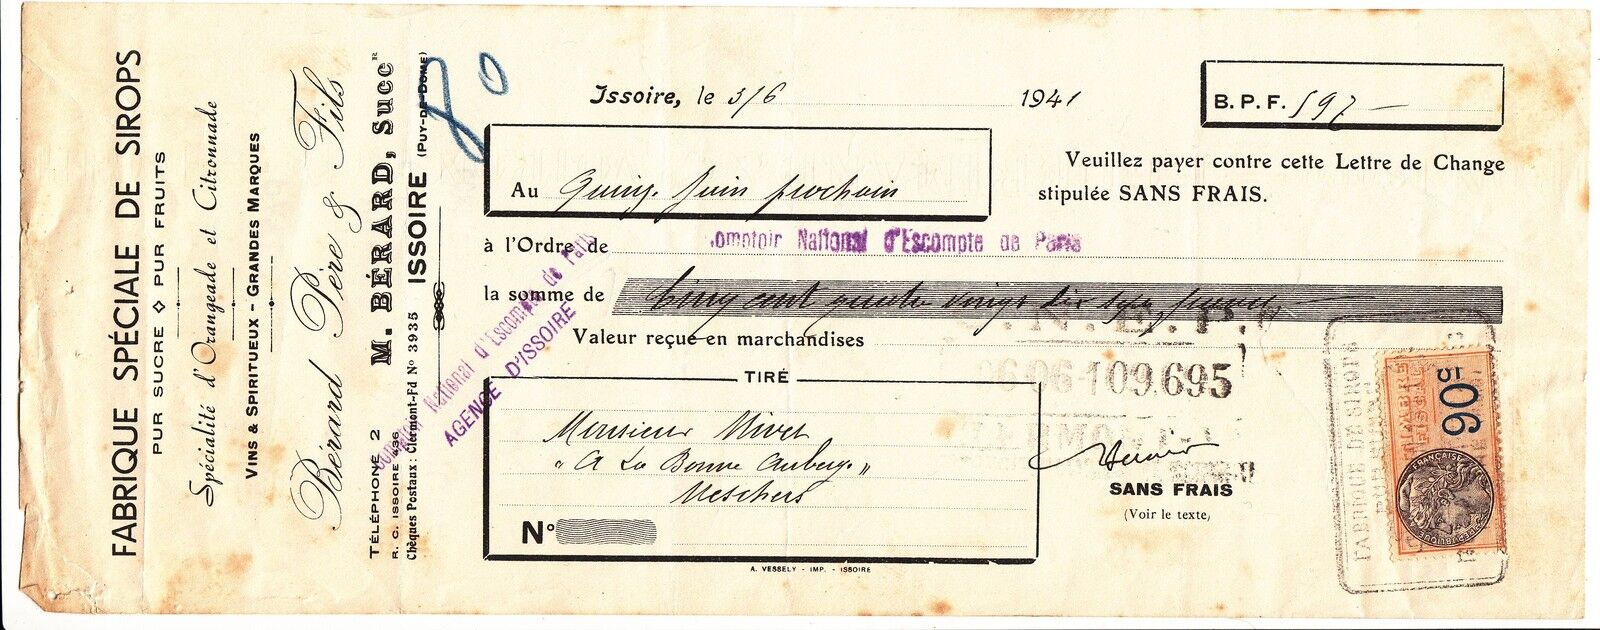 FABRIQUE SPÉCIALE DE SIROPS
PUR SUCRE ◇ PUR FRUITS
Spécialité d'Orangeade et Citronnade
VINS & SPIRITUEUX - GRANDES MARQUES
Bérard Père & Fils
M. BÉRARD, Succr
TÉLÉPHONE 2
R. C. ISSOIRE 436
Chèques Postaux : Clermont-Fd No 3935
ISSOIRE (PUY-DE-DOME)
80
National d'Escompte de Paris
AGENCE D'ISSOIRE
Issoire, le 3/6 1941
B. P. F. 597 —
Au quinze Juin prochain
Veuillez payer contre cette Lettre de Change
stipulée SANS FRAIS.
à l'Ordre de Comptoir National d'Escompte de Paris
la somme de Cinq cent quatre vingt dix sept francs
Valeur reçue en marchandises
109.695
TIRÉ
Monsieur Nivet
"A La Bonne Auberge"
Meschers
No
SANS FRAIS
(Voir le texte)
A. VESSELY - IMP. - ISSOIRE
FABRIQUE DE SIROPS
50C
RÉPUBLIQUE FRANÇAISE